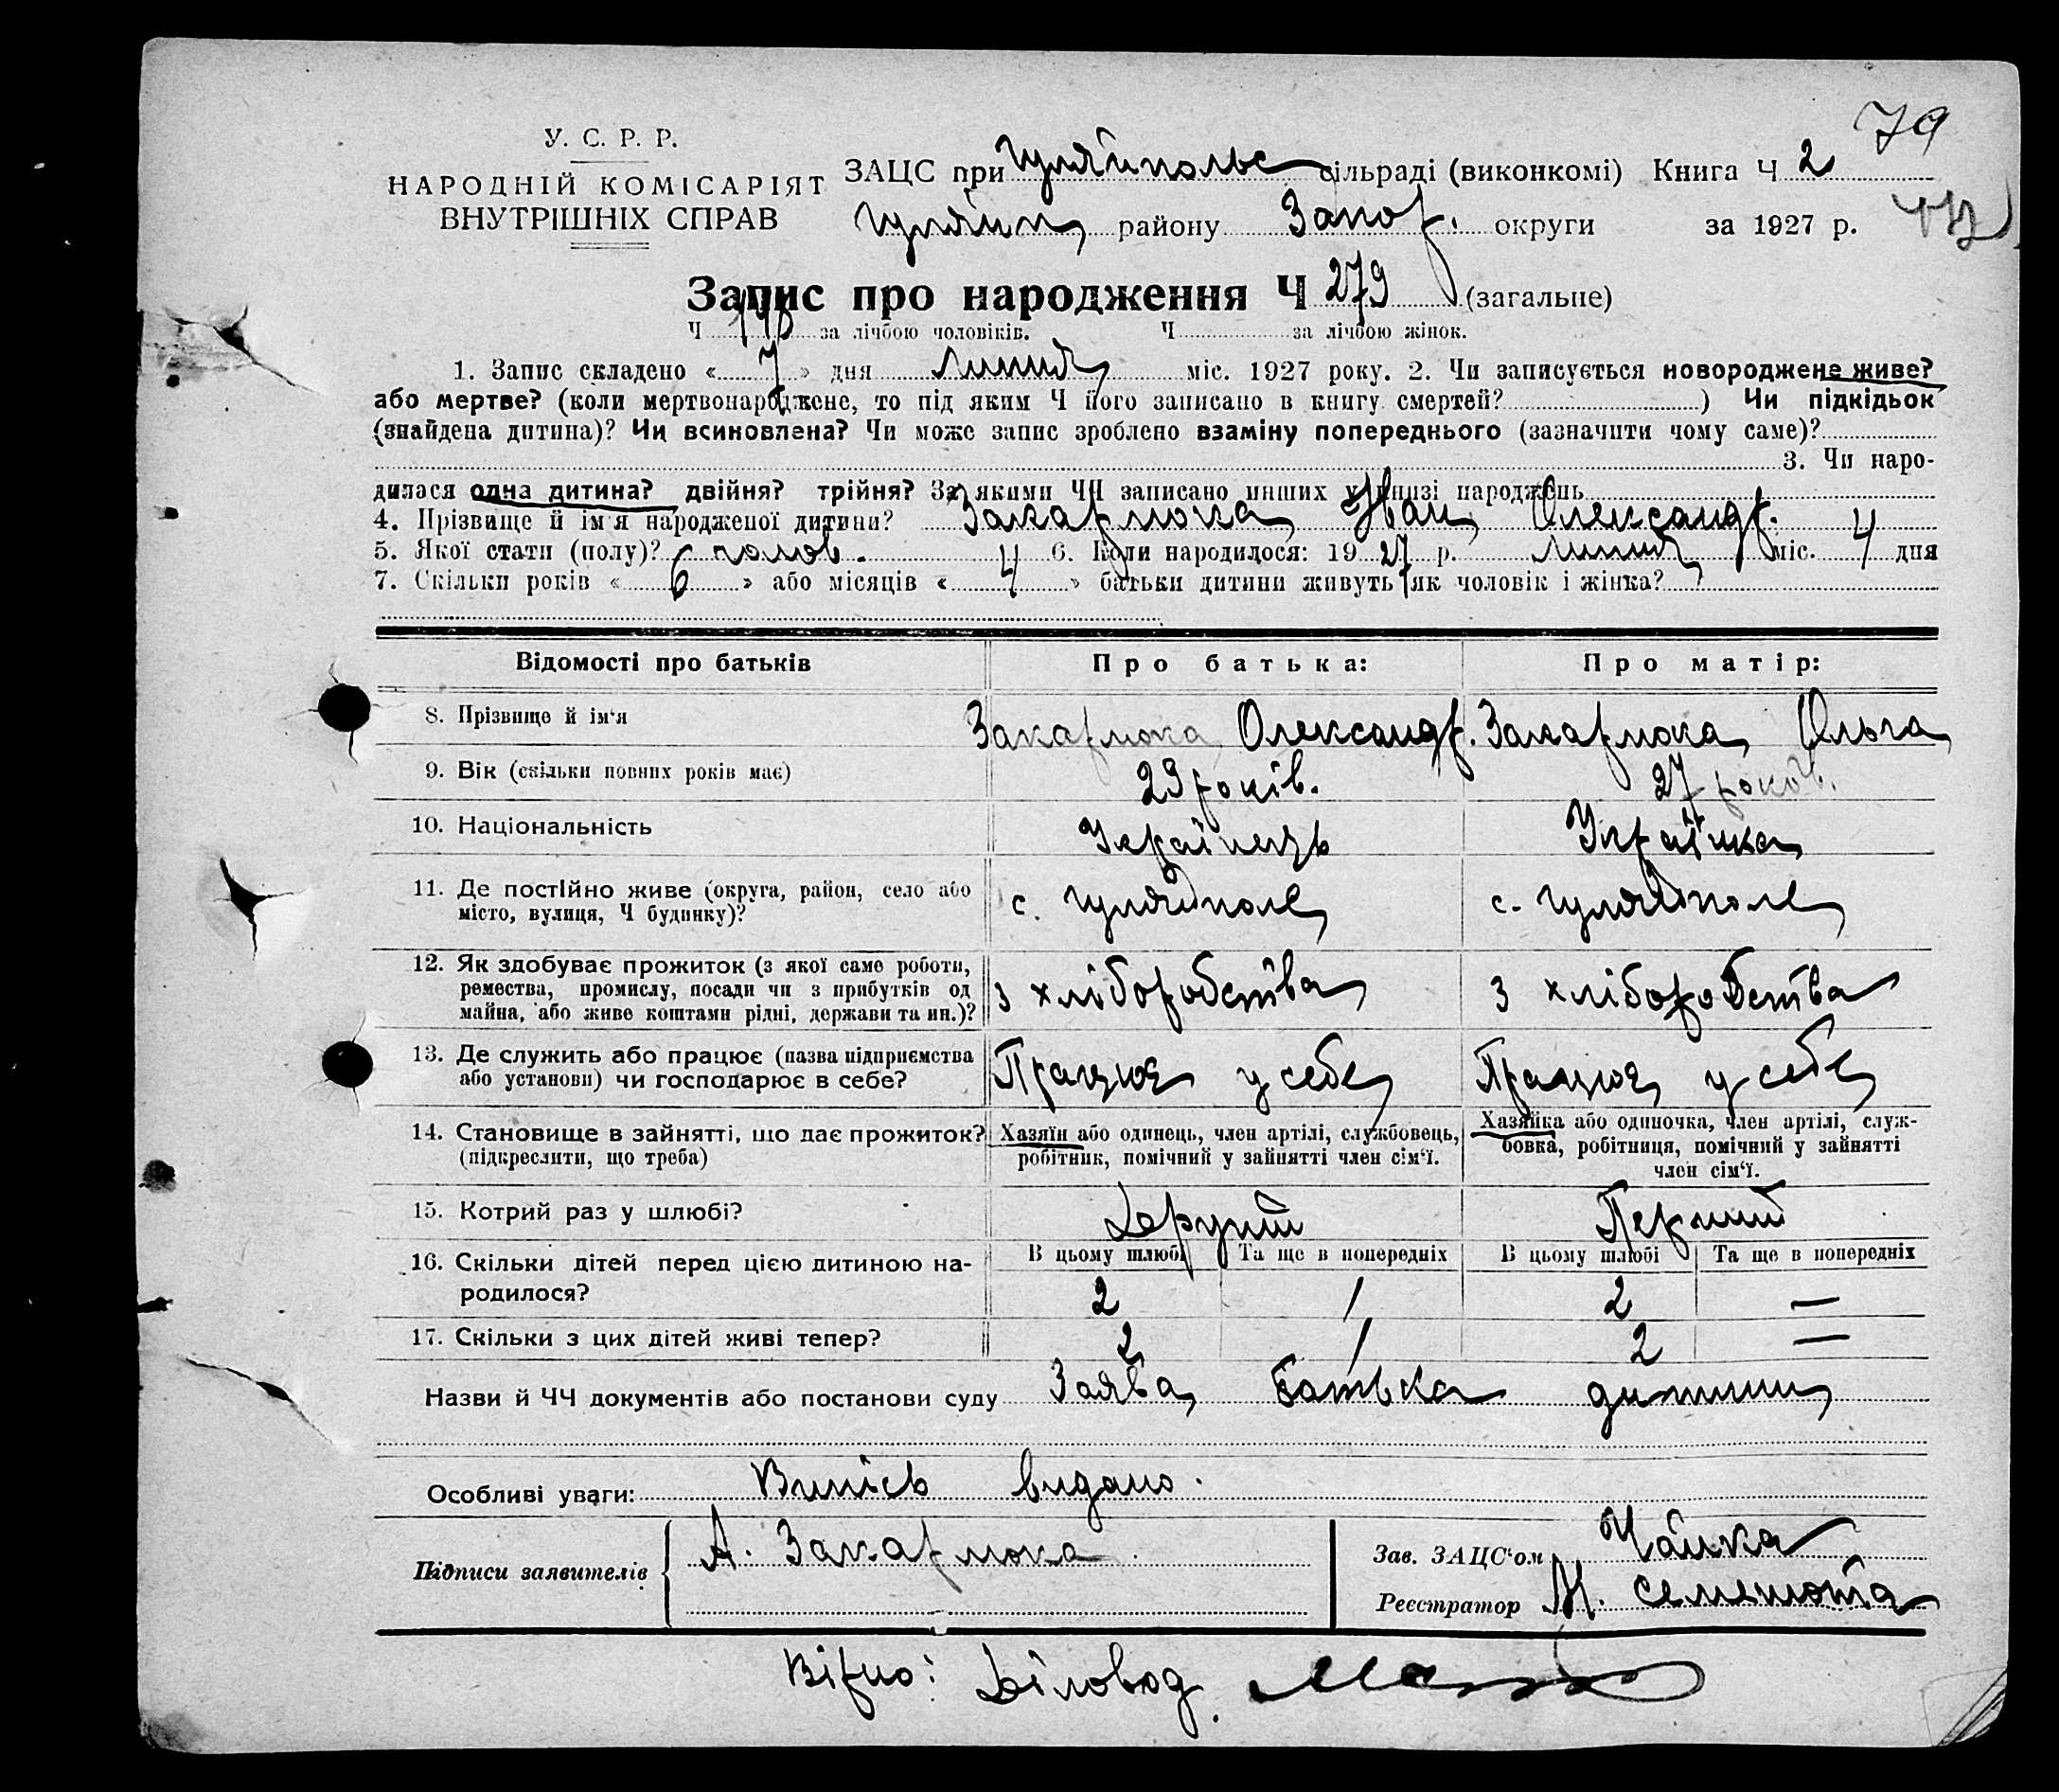 79
У. С. Р. Р.
НАРОДНІЙ КОМІСАРІЯТ
ВНУТРІШНІХ СПРАВ
ЗАЦС при Гуляйпольс сільраді (виконкомі) Книга Ч 2
Гуляйп району Запор. округи за 1927 р.
Запис про народження Ч 279 (загальне)
Ч за лічбою чоловіків. Ч за лічбою жінок.
1. Запис складено « 7 » дня Липня міс. 1927 року. 2. Чи записується новороджене живе?
або мертве? (коли мертвонароджене, то під яким Ч його записано в книгу смертей? ) Чи підкідьок
(знайдена дитина)? Чи всиновлена? Чи може запис зроблено взаміну попереднього (зазначити чому саме)?
3. Чи наро-
дилася одна дитина? двійня? трійня? За якими ЧЧ записано инших у книзі народжень
4. Прізвище й ім'я народженої дитини? Закарлюка Іван Олександр.
5. Якої стати (полу)? чолов. 6. Коли народилося: 1927 р. липня міс. 4 дня
7. Скільки років « 6 » або місяців « 4 » батьки дитини живуть як чоловік і жінка?
Відомості про батьків Про батька: Про матір:
8. Прізвище й ім'я Закарлюка Олександр. Закарлюка Ольга
9. Вік (скільки повних років має) 29 років. 27 років.
10. Національність Українець Українка
11. Де постійно живе (округа, район, село або
місто, вулиця, Ч будинку)? с. Гуляйполе с. Гуляйполе
12. Як здобуває прожиток (з якої саме роботи,
ремества, промислу, посади чи з прибутків од
майна, або живе коштами рідні, держави та ин.)? з хліборобства з хліборобства
13. Де служить або працює (назва підприємства
або установи) чи господарює в себе? Працює у себе Працює у себе
14. Становище в зайнятті, що дає прожиток?
(підкреслити, що треба)
Хазяїн або одинець, член артілі, службовець,
робітник, помічний у зайнятті член сім'ї.
Хазяйка або одиночка, член артілі, служ-
бовка, робітниця, помічний у зайнятті
член сім'ї.
15. Котрий раз у шлюбі? Другий Перший
16. Скільки дітей перед цією дитиною на-
родилося?
В цьому шлюбі Та ще в попередніх В цьому шлюбі Та ще в попередніх
2 1 2 —
17. Скільки з цих дітей живі тепер? 2 1 2 —
Назви й ЧЧ документів або постанови суду Заява батька дитини
Особливі уваги: Випісь видано.
Підписи заявителів А. Закарлюка
Зав. ЗАЦС'ом Чайка
Реєстратор М. Семенюта
Вірно: Діловод